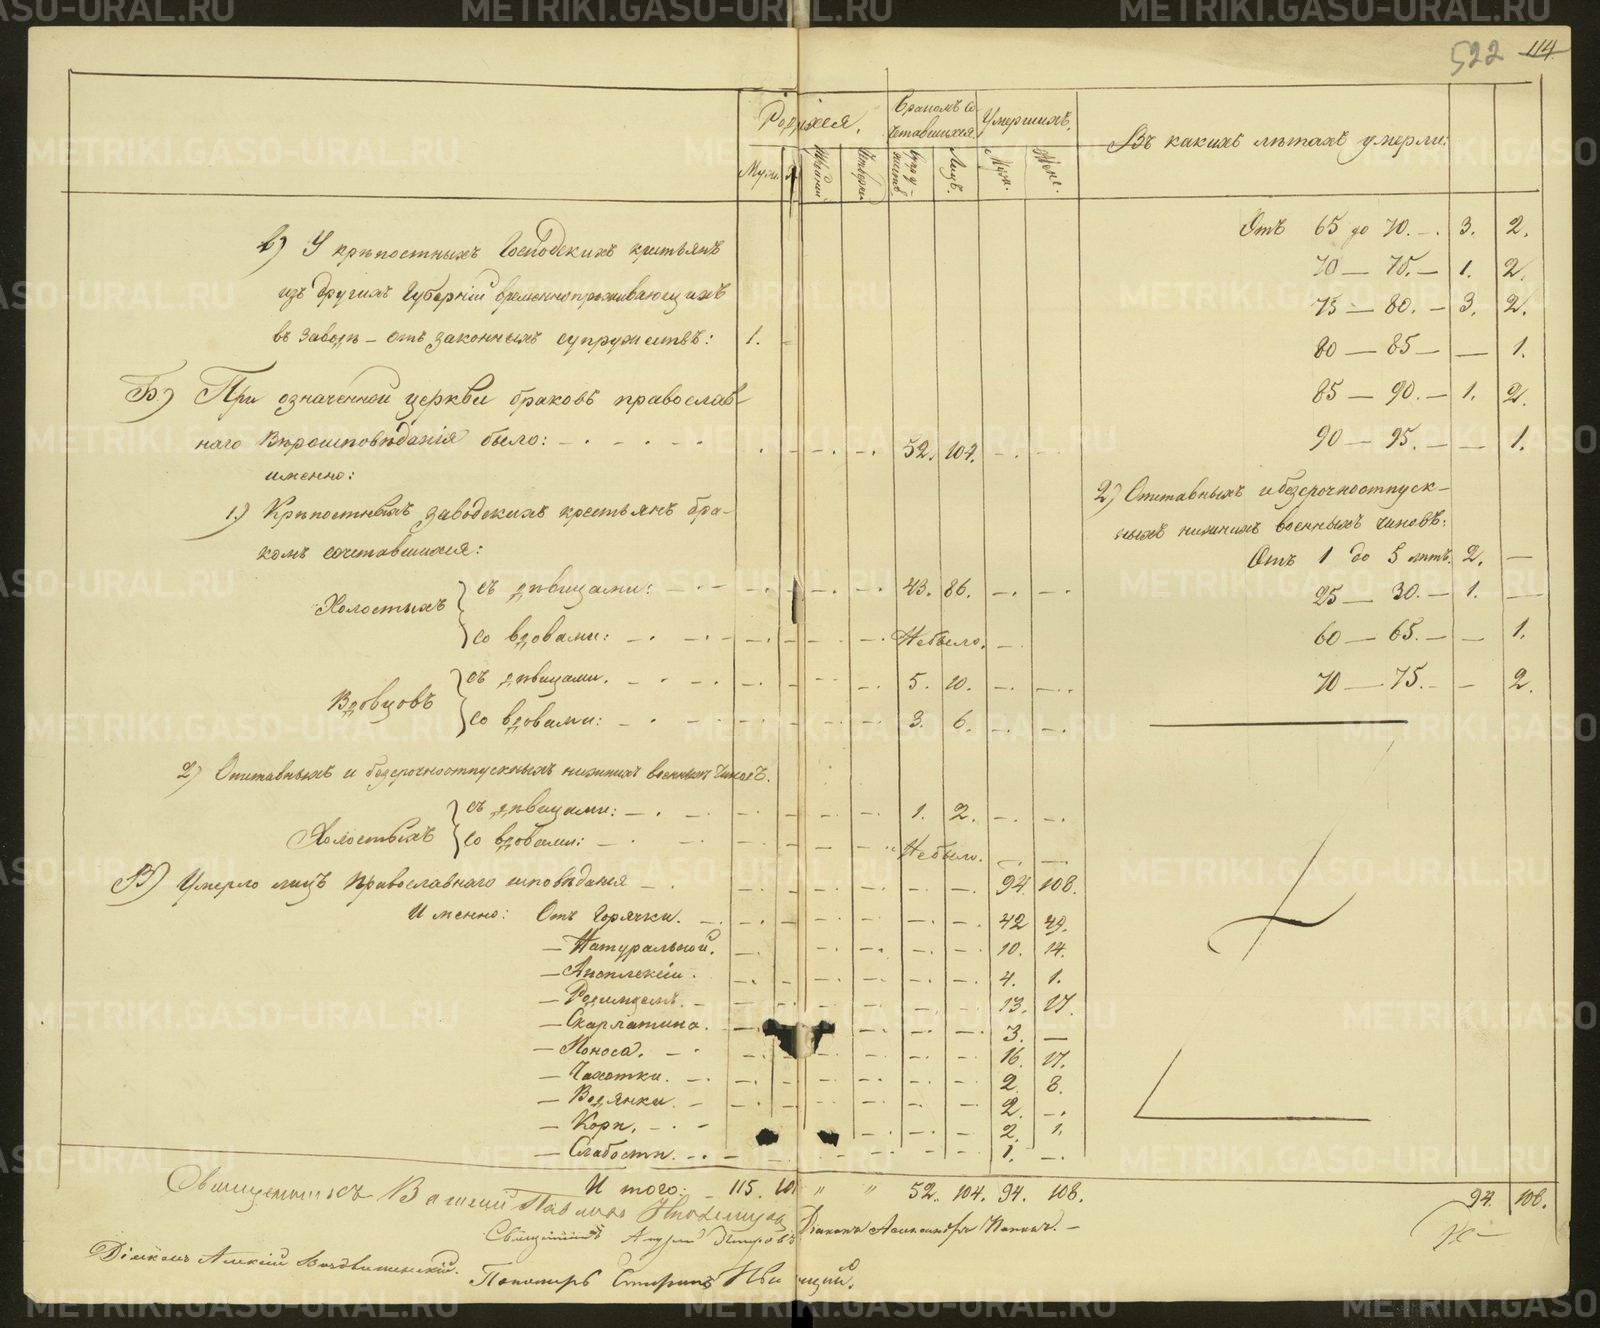 522 114
Родихся.
Бракомъ Со-
четавшихся
Умершихъ.
Въ какихъ лѣтахъ умерли:
Муж.
Лицъ.
Муж.
Жен.
в) У крѣпостныхъ Господскихъ крестьянъ
изъ другихъ Губерній временнопроживающихъ
въ заводѣ – отъ законныхъ супружествъ: 1. –
Б.) При означенной церкви браковъ православ-
наго Вѣроисповѣданія было: 52. 104.
именно:
1.) Крѣпостныхъ заводскихъ крестьянъ бра-
комъ сочетавшихся:
Холостыхъ
съ дѣвицами: 43. 86.
со вдовами: Небыло.
Вдовцовъ
съ дѣвицами. 5. 10.
со вдовами: 3. 6.
2) Отставныхъ и безсрочноотпускныхъ нижнихъ военныхъ чиновъ.
Холостыхъ
съ дѣвицами: 1. 2.
со вдовами: Небыло.
В) Умерло лицъ Православнаго исповѣданія 94. 108.
Именно: Отъ Горячки. 42 49.
– Натуральной. 10. 14.
– Апоплексіи. 4. 1.
– Родимцемъ. 13. 17.
– Скарлатина. 3. –
– Поноса. 16. 17.
– Чахотки. 2. 8.
– Водянки. 2. –
– Кори. 2. 1.
– Слабости. 1. –
Итого: 115. 101 " " 52. 104. 94. 108.
Отъ 65 до 70. – 3. 2.
70 – 75. – 1. 2.
75 – 80. – 3. 2.
80 – 85 – – 1.
85 – 90. – 1. 2.
90 – 95. – – 1.
2) Отставныхъ и безсрочноотпуск-
ныхъ нижнихъ военныхъ чиновъ:
Отъ 1 до 5 лѣтъ. 2. –
25 – 30. – 1. –
60 – 65. – – 1.
70 – 75. – – 2.
94. 108.
Священникъ
Священникъ
Діаконъ Александръ Поповъ. –
Діаконъ Алексій Воздвиженскій.
Пономарь
METRIKI.GASO-URAL.RU